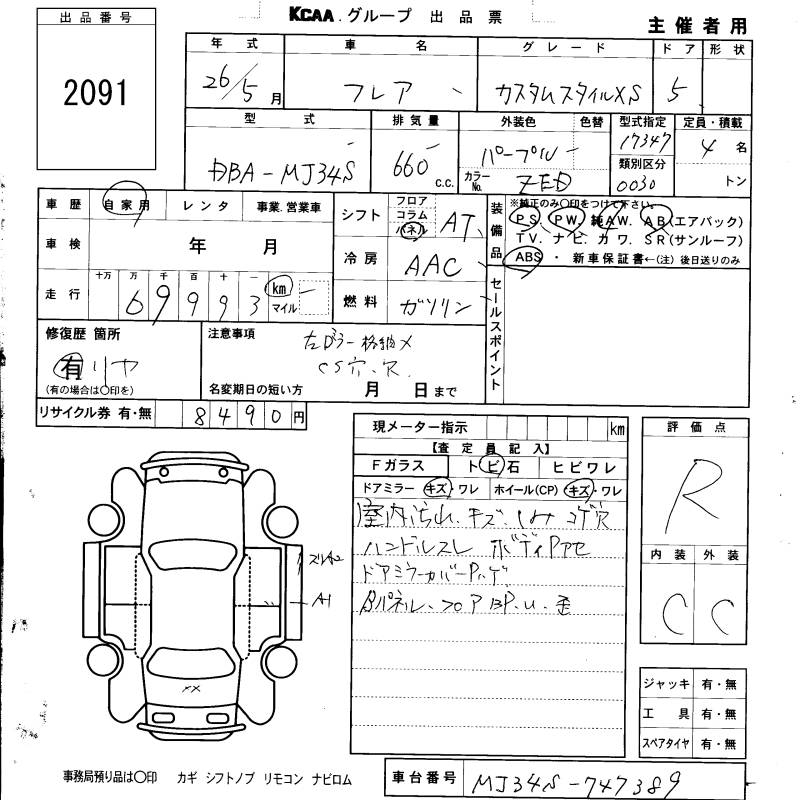 KCAA.グループ 出品票
主催者用
出品番号
2091
年式 車名 グレード ドア 形状
26/5月 フレア カスタムスタイルXS 5
型式 排気量 外装色 色替 型式指定 定員・積載
DBA-MJ34S 660 c.c. パープル 17347 4名
カラーNo. ZED 類別区分 0030 トン
車歴 自家用 レンタ 事業.営業車
シフト フロア コラム パネル AT
装備品 ※純正のみ〇印をつけて下さい。
PS、PW、純AW、AB(エアバック)
TV、ナビ、カワ、SR(サンルーフ)
ABS・新車保証書←(注)後日送りのみ
車検 年 月
冷房 AAC
走行 十万 万 千 百 十 一
69993 km マイル
燃料 ガソリン
セールスポイント
修復歴 箇所
有 リヤ
(有の場合は〇印を)
注意事項
左Dミラー格納×
CS穴.穴
名変期日の短い方 月 日まで
リサイクル券 有・無 8490円
現メーター指示 km
【査定員記入】
Fガラス トビ石 ヒビワレ
ドアミラー キズ・ワレ ホイール(CP) キズ・ワレ
室内汚れ、キズ、しみ コゲ穴
ハンドルスレ ボディPアセ
ドアミラーカバーPハゲ
Bパネル、フロアBP.U.歪
評価点
R
内装 外装
C C
A1
ジャッキ 有・無
工具 有・無
スペアタイヤ 有・無
事務局預り品は〇印 カギ シフトノブ リモコン ナビロム
車台番号 MJ34S-747389